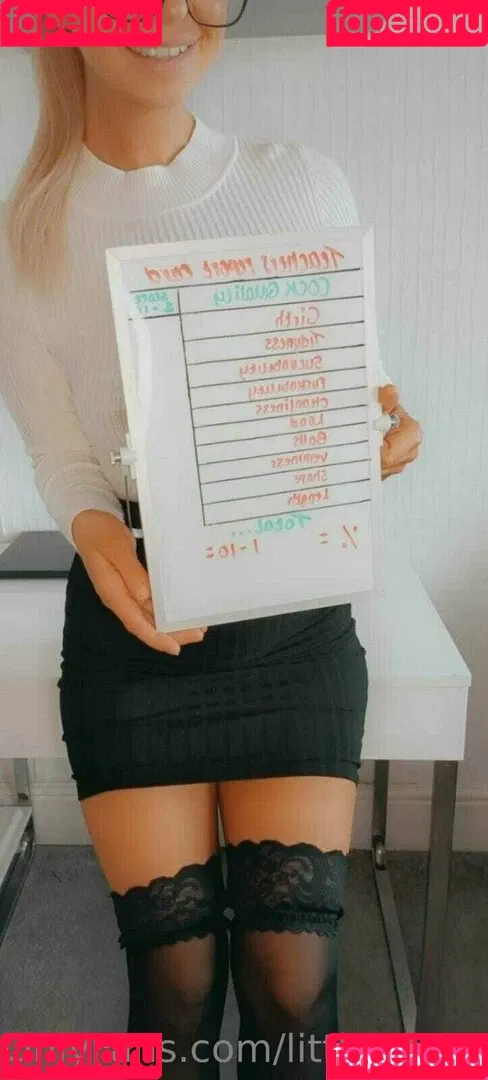 fapello.ru fapello.ru
Teachers report card
Cock Quality Score
Girth
Tidyness
Suckability
Fuckability
cleanliness
Load
Balls
Veininess
Shape
Length
Total...
% = 1-10=
fapello.ru s.com/lit fapello.ru